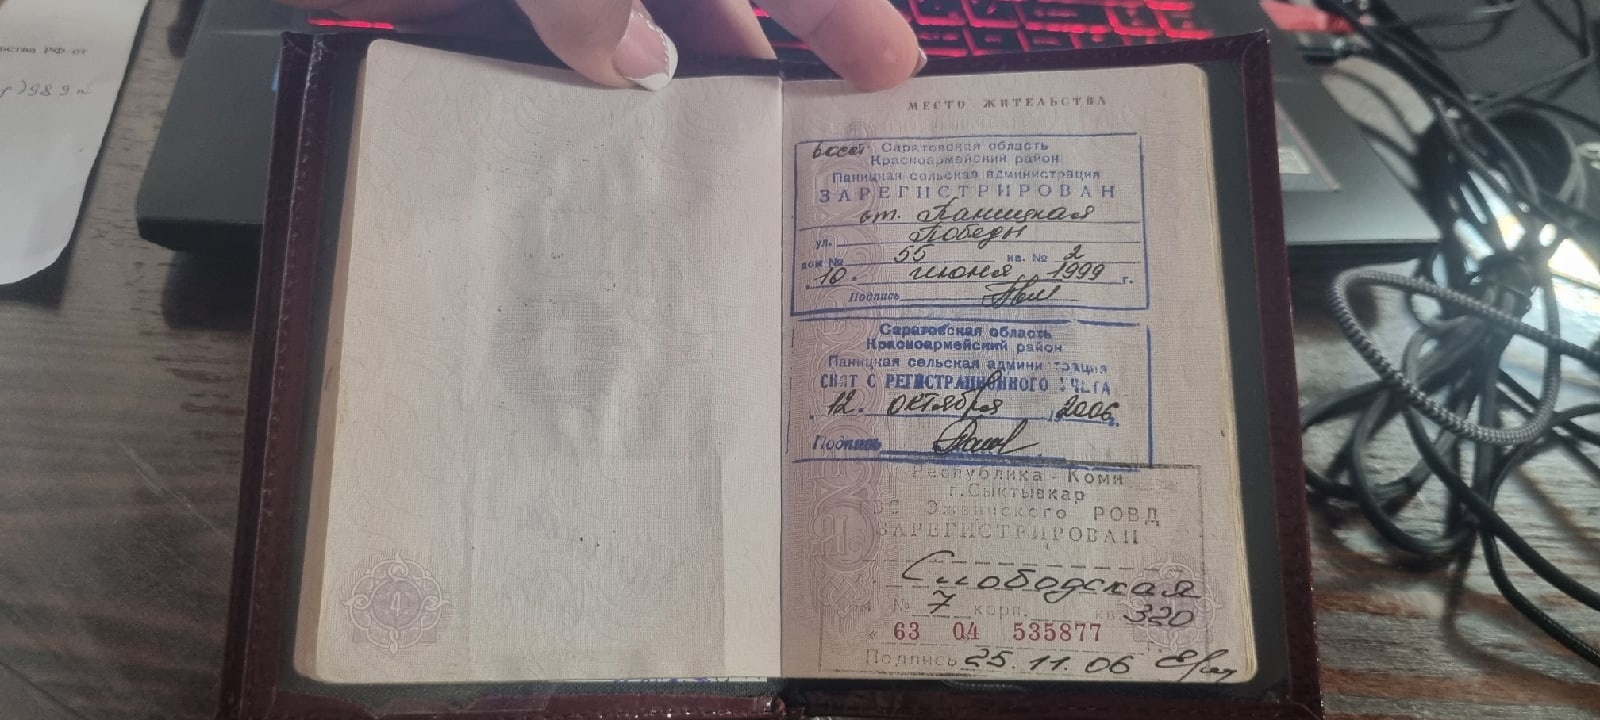 МЕСТО ЖИТЕЛЬСТВА
Саратовская область
Красноармейский район
Паницкая сельская администрация
ЗАРЕГИСТРИРОВАН
ст. Паницкая
ул. Победы
дом № 55 кв. № 2
10. июня 1999 г.
Подпись
Саратовская область
Красноармейский район
Паницкая сельская администрация
СНЯТ С РЕГИСТРАЦИОННОГО УЧЕТА
12. октября 2006 г.
Подпись
Республика Коми
г.Сыктывкар
Эжвинского РОВД
ЗАРЕГИСТРИРОВАН
Слободская
№ 7 корп. кв 320
63 04 535877
Подпись 25.11.06
4